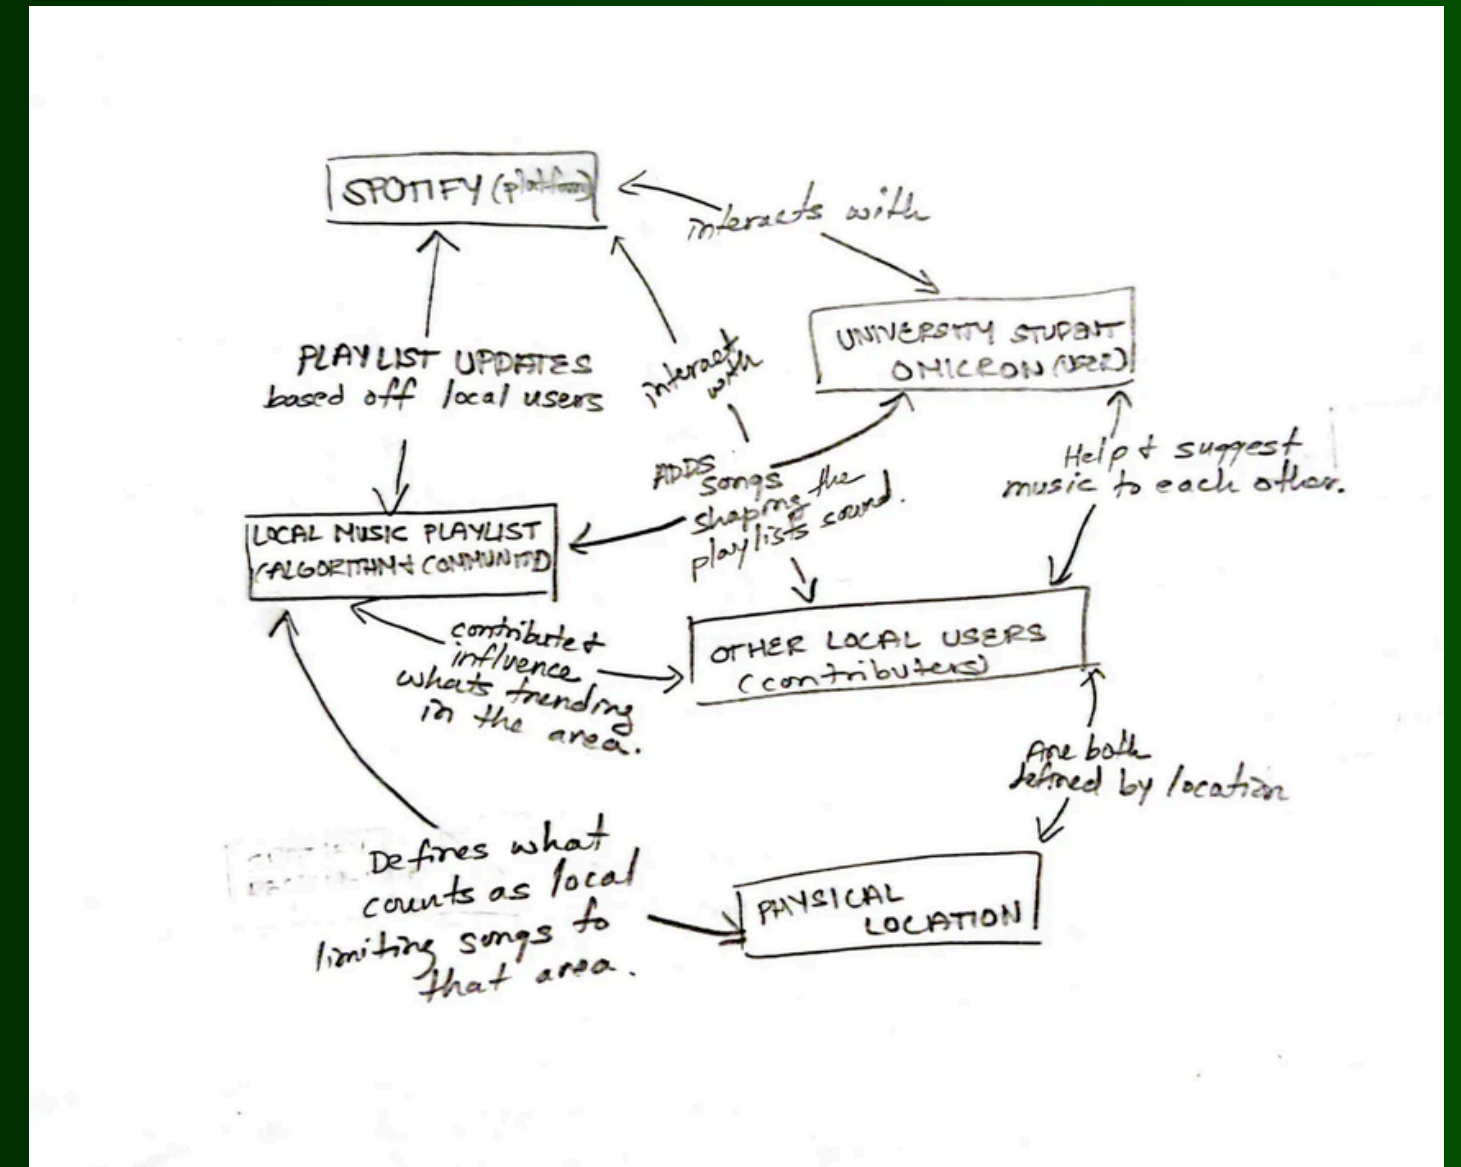 SPOTIFY (platform)
interacts with
UNIVERSITY STUDENT
OMICRON (USER)
PLAYLIST UPDATES
based off local users
interact
with
Help & suggest
music to each other.
ADDS
songs
shaping the
playlists sound.
LOCAL MUSIC PLAYLIST
(ALGORITHM & COMMUNITY)
contribute &
influence
whats trending
in the area.
OTHER LOCAL USERS
(contributers)
Are both
defined by location
Defines what
counts as local
limiting songs to
that area.
PHYSICAL
LOCATION